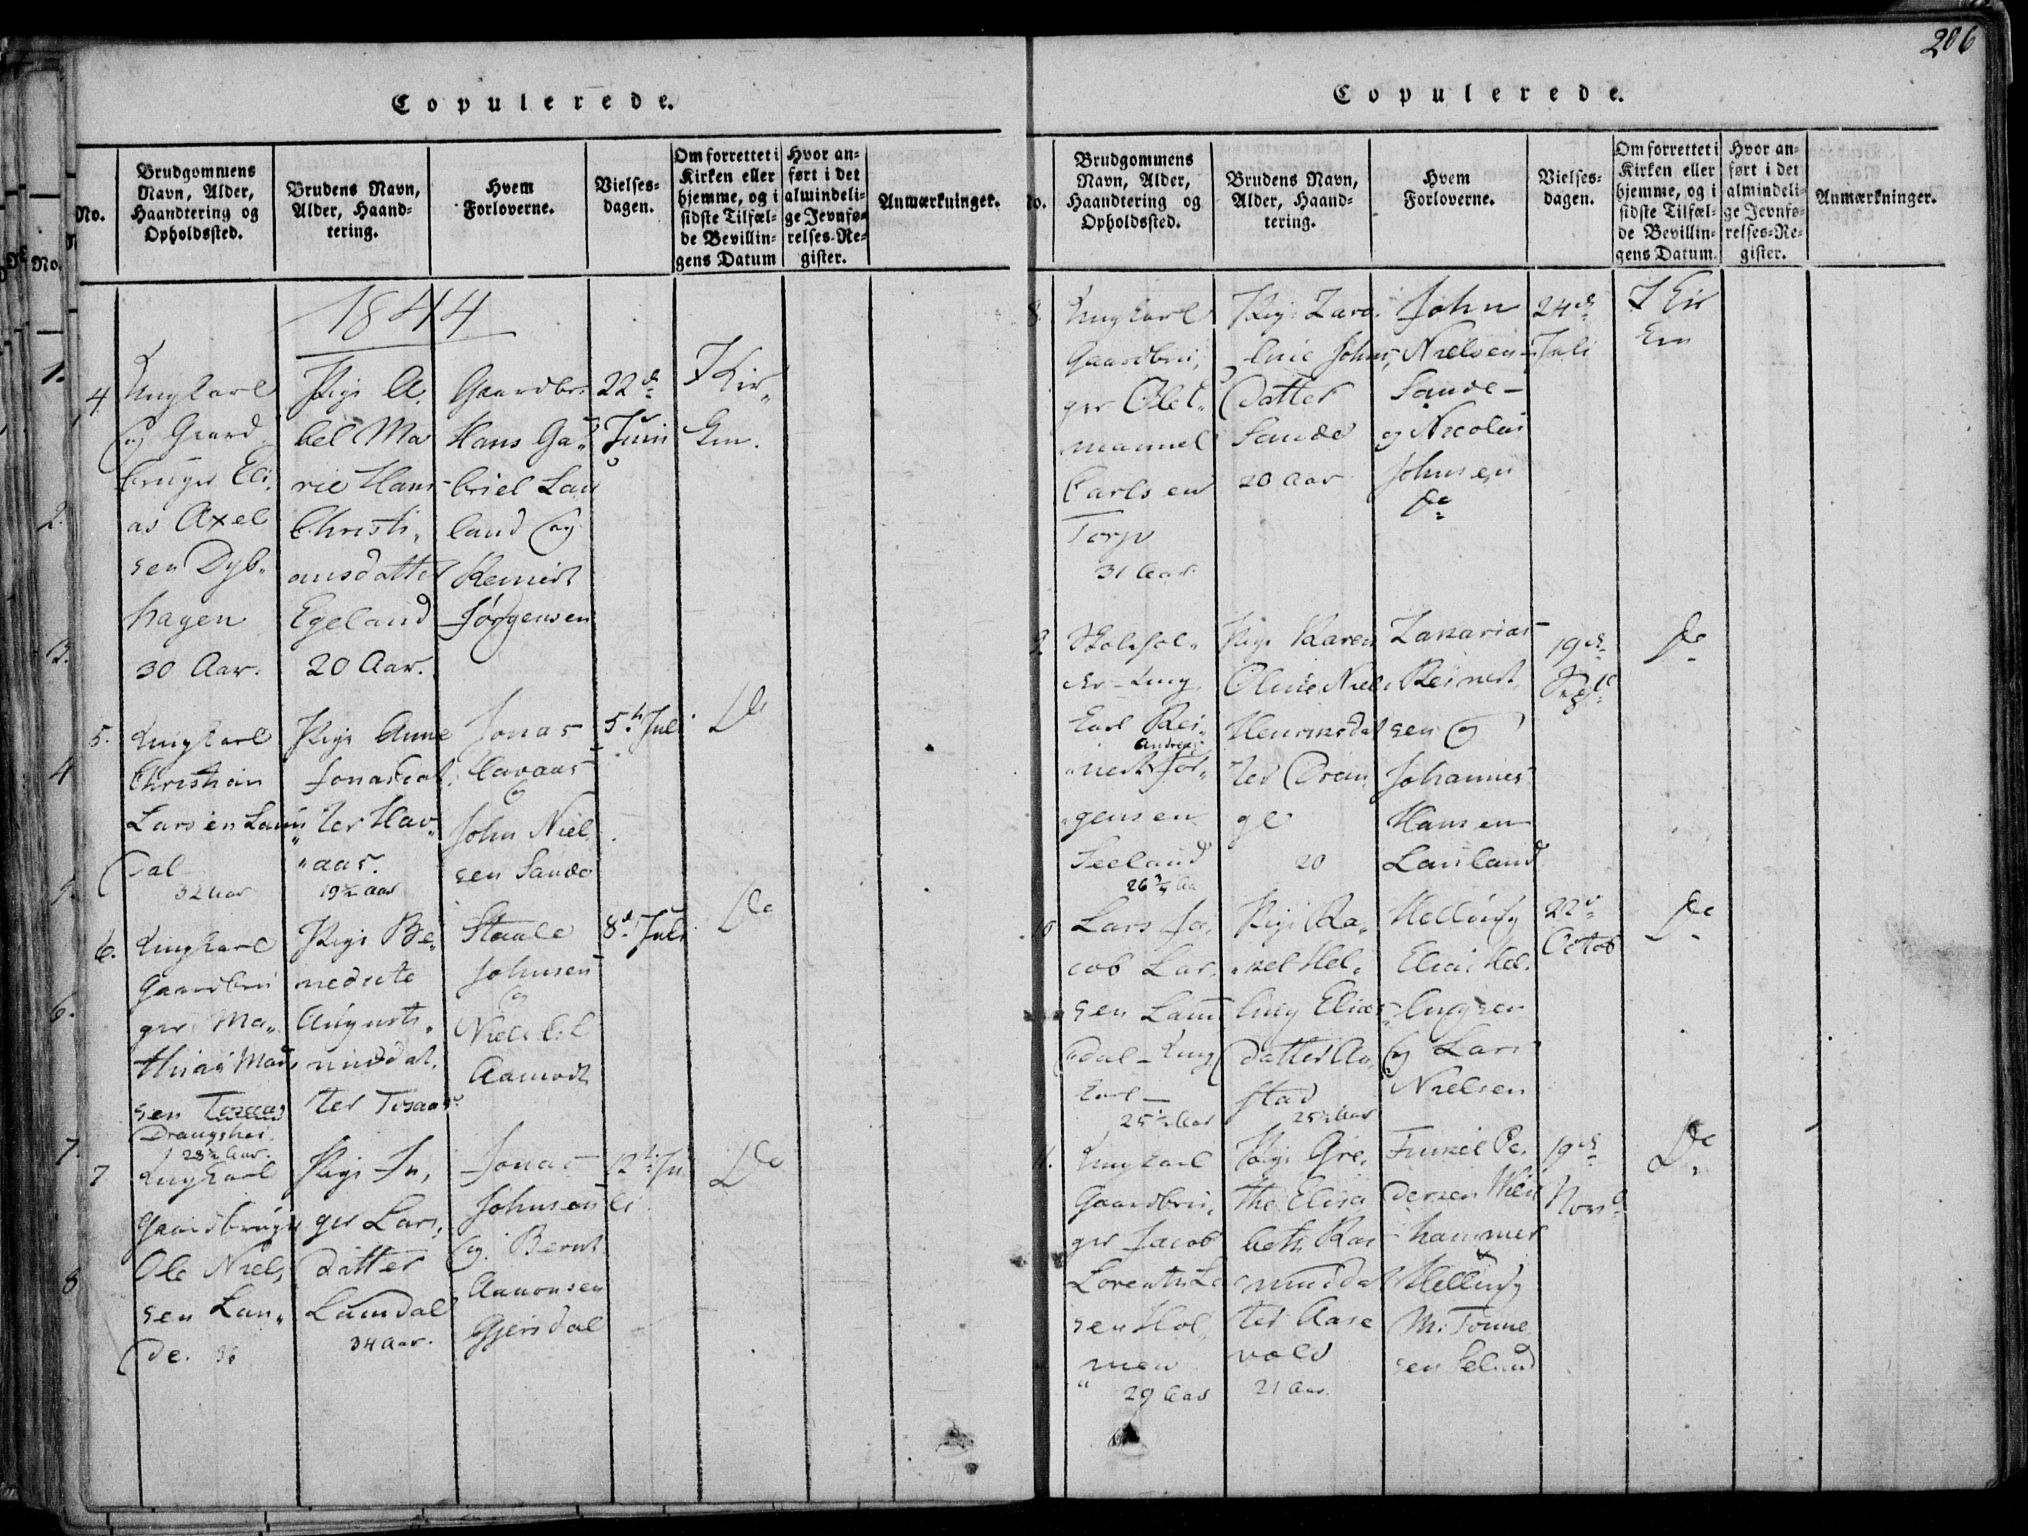 206
Copulerede.
No.
Brudgommens
Navn, Alder,
Haandtering og
Opholdssted.
Brudens Navn,
Alder, Haand-
tering.
Hvem
Forloverne.
Vielses-
dagen.
Om forrettet i
Kirken eller
hjemme, og i
sidste Tilfæl-
de Bevillin-
gens Datum
Hvor an-
ført i det
almindeli-
ge Jevnfø-
relses-Re-
gister.
Anmærkninger.
1844
4.
Ungkarl
og Gaard-
bruger Eli-
as Axel
sen Dyb-
hagen
30 Aar.
Pige A
bel Ma
rie Hans
Christi-
ansdatter
Egeland
20 Aar.
Gaardbr.
Hans Ga-
briel Lau
land og
Reinert
Jørgensen
22de
Juni
I Kir-
ken.
5.
Ungkarl
Christian
Larsen Laun
dal
32 Aar
Pige Anne
Jonasdat
ter Hav-
aas.
19½ Aar
Jonas
Havaas
og
John Niel
sen Sande
5te Juli
Do
6.
Ungkarl
Gaardbru
ger Ma-
thias Mad
sen
Drangshei
28½ Aar.
Pige Be-
nedicte
August-
inusdat-
ter
Staale
Johnsen
og
Niels
Aamodt
8de Juli
Do
7
Ungkarl
Gaardbruger
Ole Niel-
sen Lan-
de. 36
Pige In-
ger Lars-
datter
Laundal
34 Aar.
Jonas
Johnsen
og Bernt
Aanonsen
Gjersdal
12te Ju
li
Do
Copulerede.
No.
Brudgommens
Navn, Alder,
Haandtering og
Opholdssted.
Brudens Navn,
Alder, Haand-
tering.
Hvem
Forloverne.
Vielses-
dagen.
Om forrettet i
Kirken eller
hjemme, og i
sidste Tilfæl-
de Bevillin-
gens Datum.
Hvor an-
ført i det
almindeli-
ge Jevnfø-
relses-Re-
gister.
Anmærkninger.
8.
Ungkarl
Gaardbru-
ger Ole E-
manuel
Carlsen
Torp
31 Aar.
Pige Karo-
line Johns
datter
Sande
20 Aar
John
Nielsen
Sande
og Nicolai
Johnsen
do
24de
Juli
I Kir
ken
9.
Skolehol-
der Ung
karl Rei-
Andreas
nert Jør-
gensen
Seeland
26¾ Aar
Pige Karen
Oline Niel
Henriksdat
ter Dran
ge
20
Zakarias
Reinert
sen og
Johannes
Hansen
Lauland
19de
Septe
Do
10
Lars Ja-
cob Lar-
sen Laun
dal - Ung
karl
25½ Aar
Pige Ra-
kel Hel-
ling Elias
datter Aa-
stad
25½ Aar
Helling
Elias Hel-
lingsen
og Lars
Nielsen
22de
Octob
Do
11.
Ungkarl
Gaardbru-
ger Jacob
Lorents La
sen Hol-
men
29 Aar
Pige Gre-
the Elisa
beth Ras
musdat
ter Aase
vold
21 Aar.
Pe-
dersen
hammer
Helling
M: Tønne
sen
19de
Novb
Do